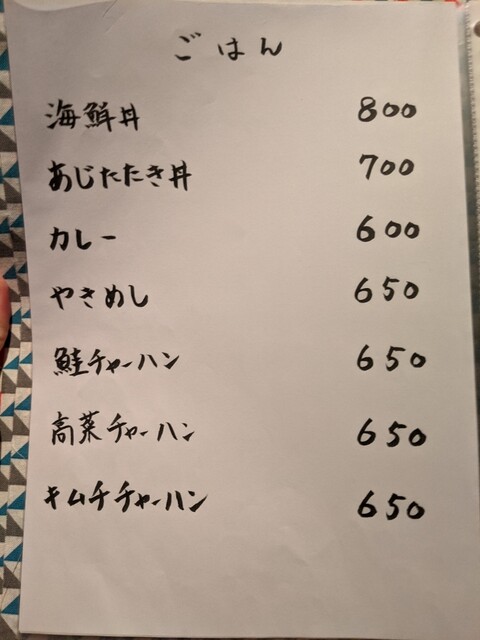 ごはん
海鮮丼 800
あじたたき丼 700
カレー 600
やきめし 650
鮭チャーハン 650
高菜チャーハン 650
キムチチャーハン 650